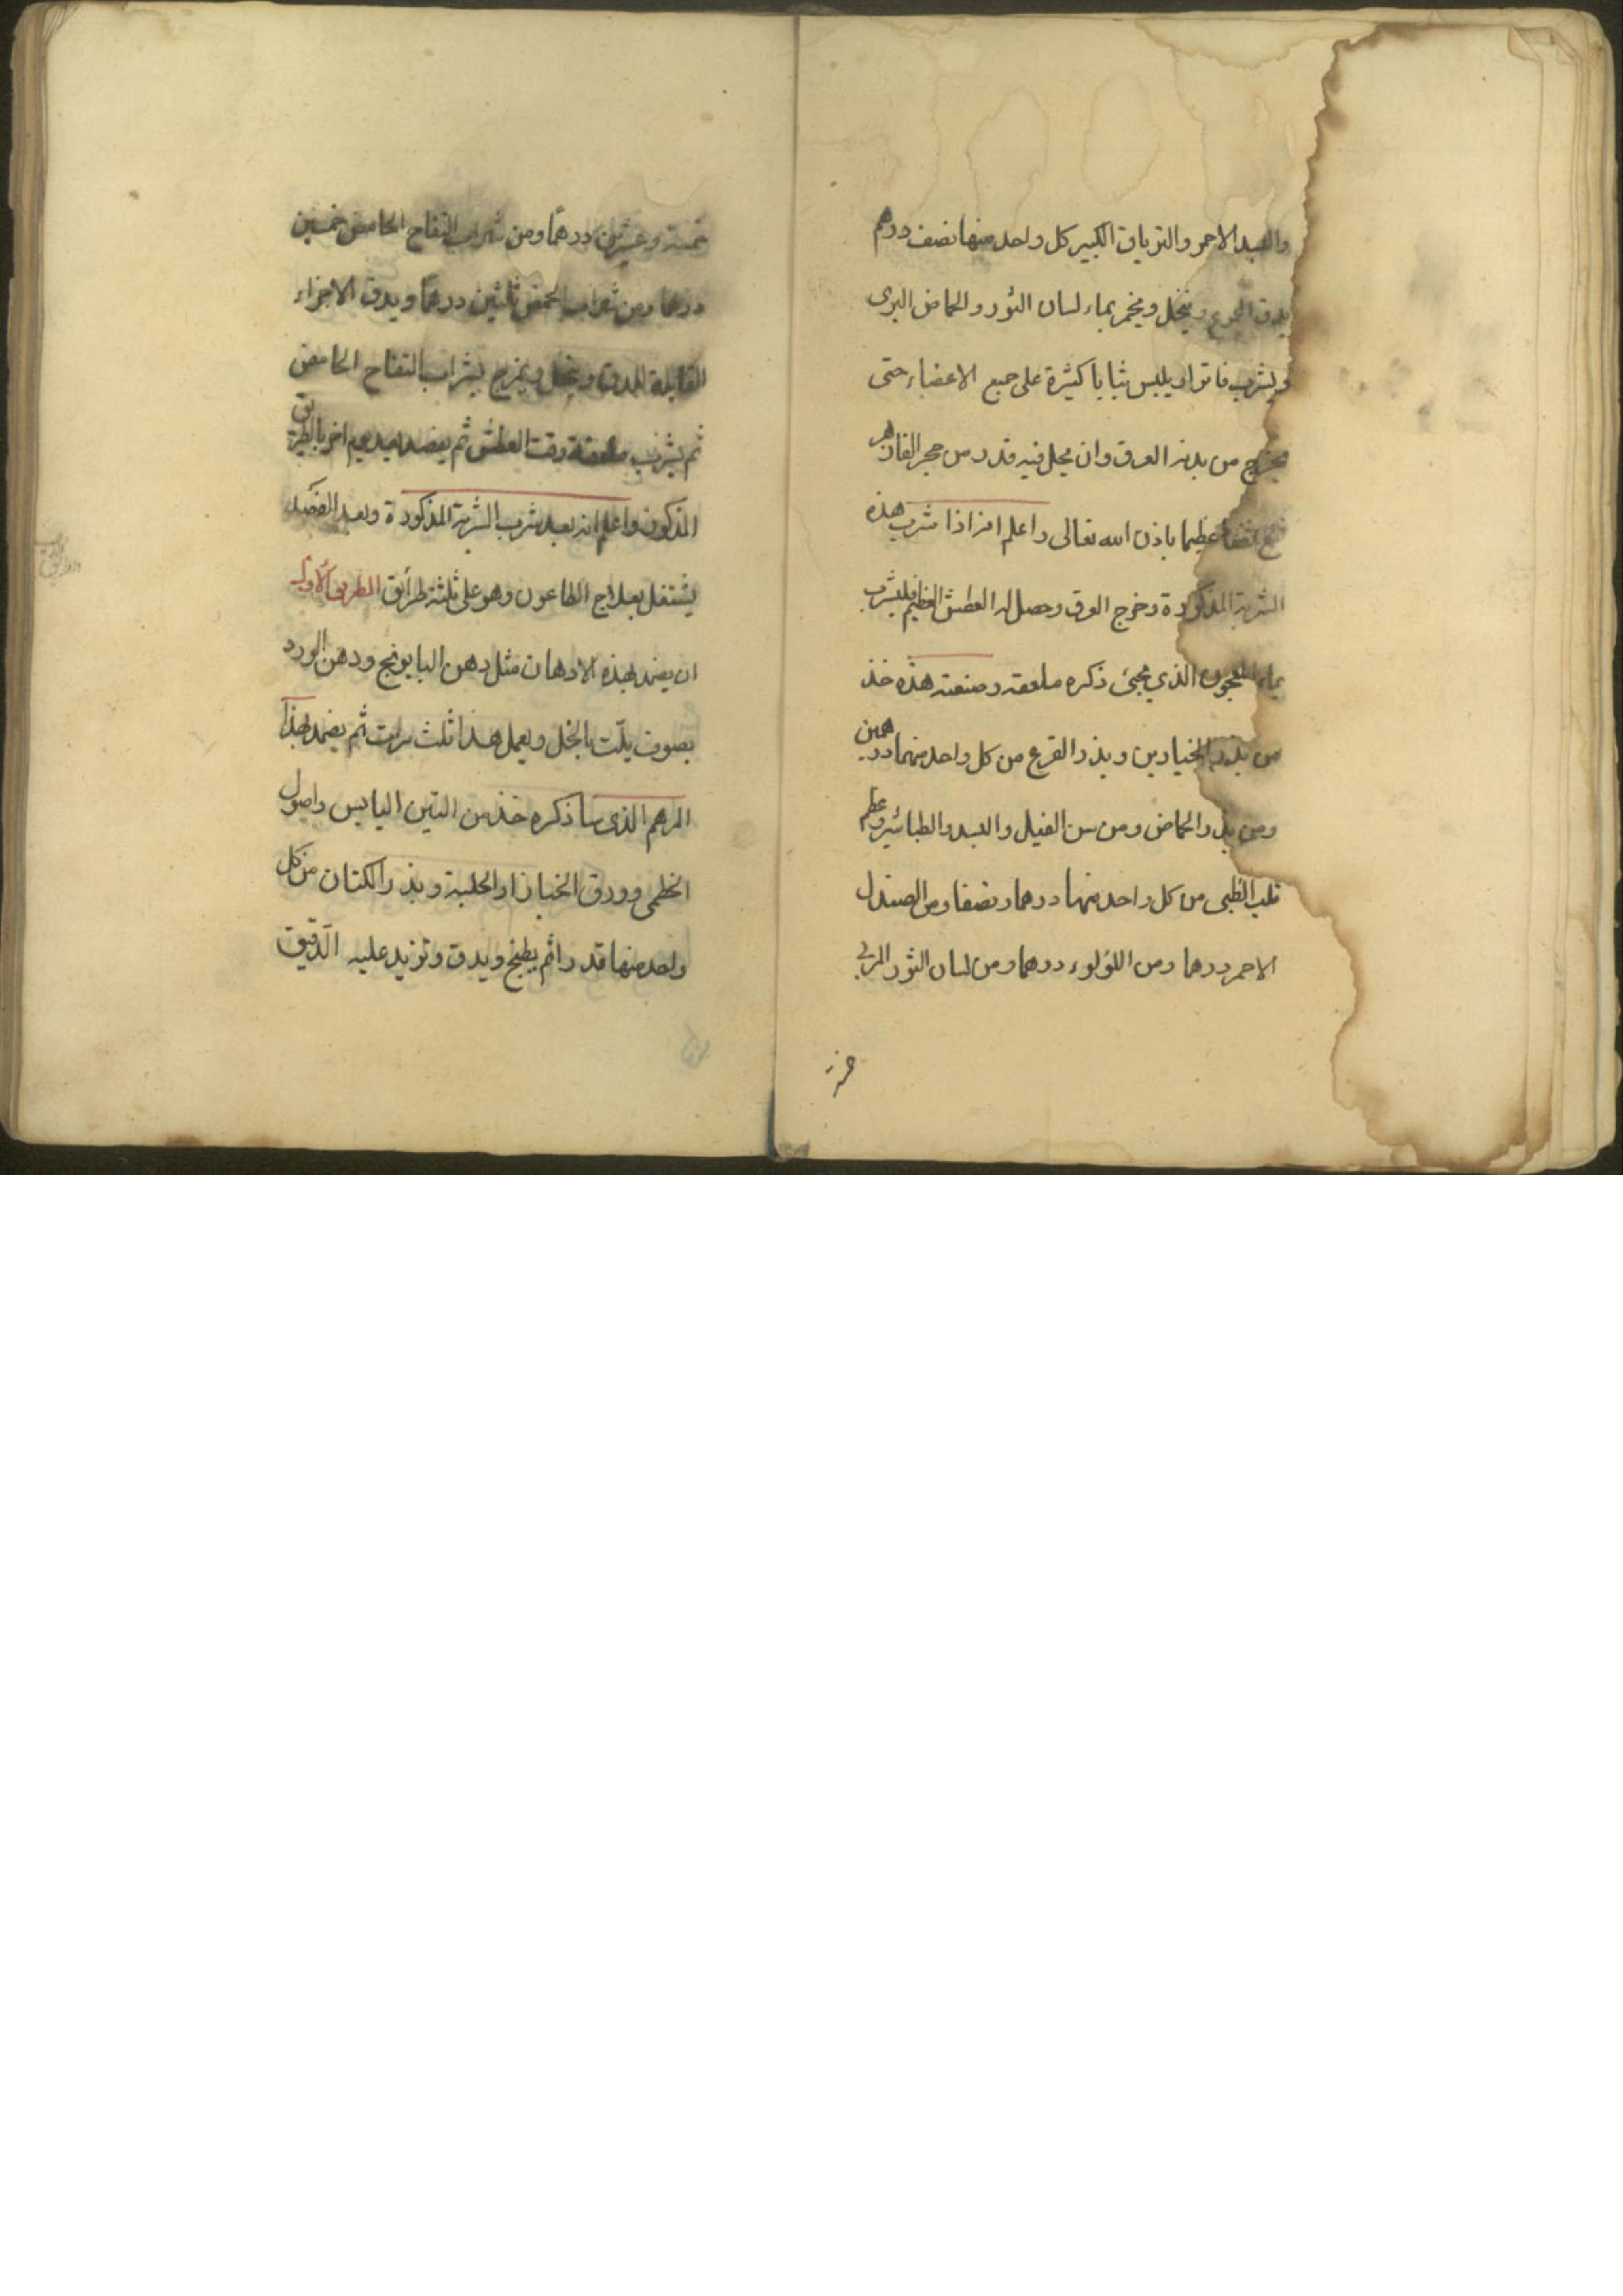 والبسد الاحمر والترياق الكبير كل واحد منها نصف درهم
يدق الجميع وينخل ويخمر بماء لسان الثور والحماض البرى
ويشرب فاترا ويلبس ثيابا كثيرة على جميع الاعضاء حتى
يخرج من بدنه العرق وان يحل فيه قدر من حجر الفادزهر
نفع نفعا عظيما باذن الله تعالى واعلم انه اذا شرب هذه
الشربة المذكورة وخرج العرق وحصل له العطش العظيم فليشرب
المعجون الذي يجئ ذكره ملعقة وصنعته هذه خذ
من بذر الخيارين وبذر القرع من كل واحد منهما درهمين
ومن بذر الحماض ومن سن الفيل والبسد والطباشير وعظم
قلب الظبى من كل واحد منها درهما ونصفا ومن الصندل
الاحمر درهما ومن اللؤلوء درهما ومن لسان الثور المربى
خمسة وعشرين درهما ومن شراب التفاح الحامض خمسين
درهما ومن شراب الحمض ثلثين درهما ويدق الاجزاء
القابلة للدق وينخل ويمزج بشراب التفاح الحامض
ثم يشرب ملعقة وقت العطش ثم يفصد بعد يوم اخر بالطريق
المذكور واعلم انه بعد شرب الشربة المذكورة وبعد الفصد
يشتغل بعلاج الطاعون وهو على ثلثة طرائق الطريق الاول
ان يضمد بهذه الادهان مثل دهن البابونج ودهن الورد
بصوف يلّت بالخل ويعمل هذا ثلث مرات ثم يضمد بهذا
المرهم الذى ساذكره خذ من التين اليابس واصول
الخطمى وورق الخبازا والحلبة وبذر الكتان من كل
واحد منها قدرا ثم يطبخ ويدق وتزيد عليه الدّقيق